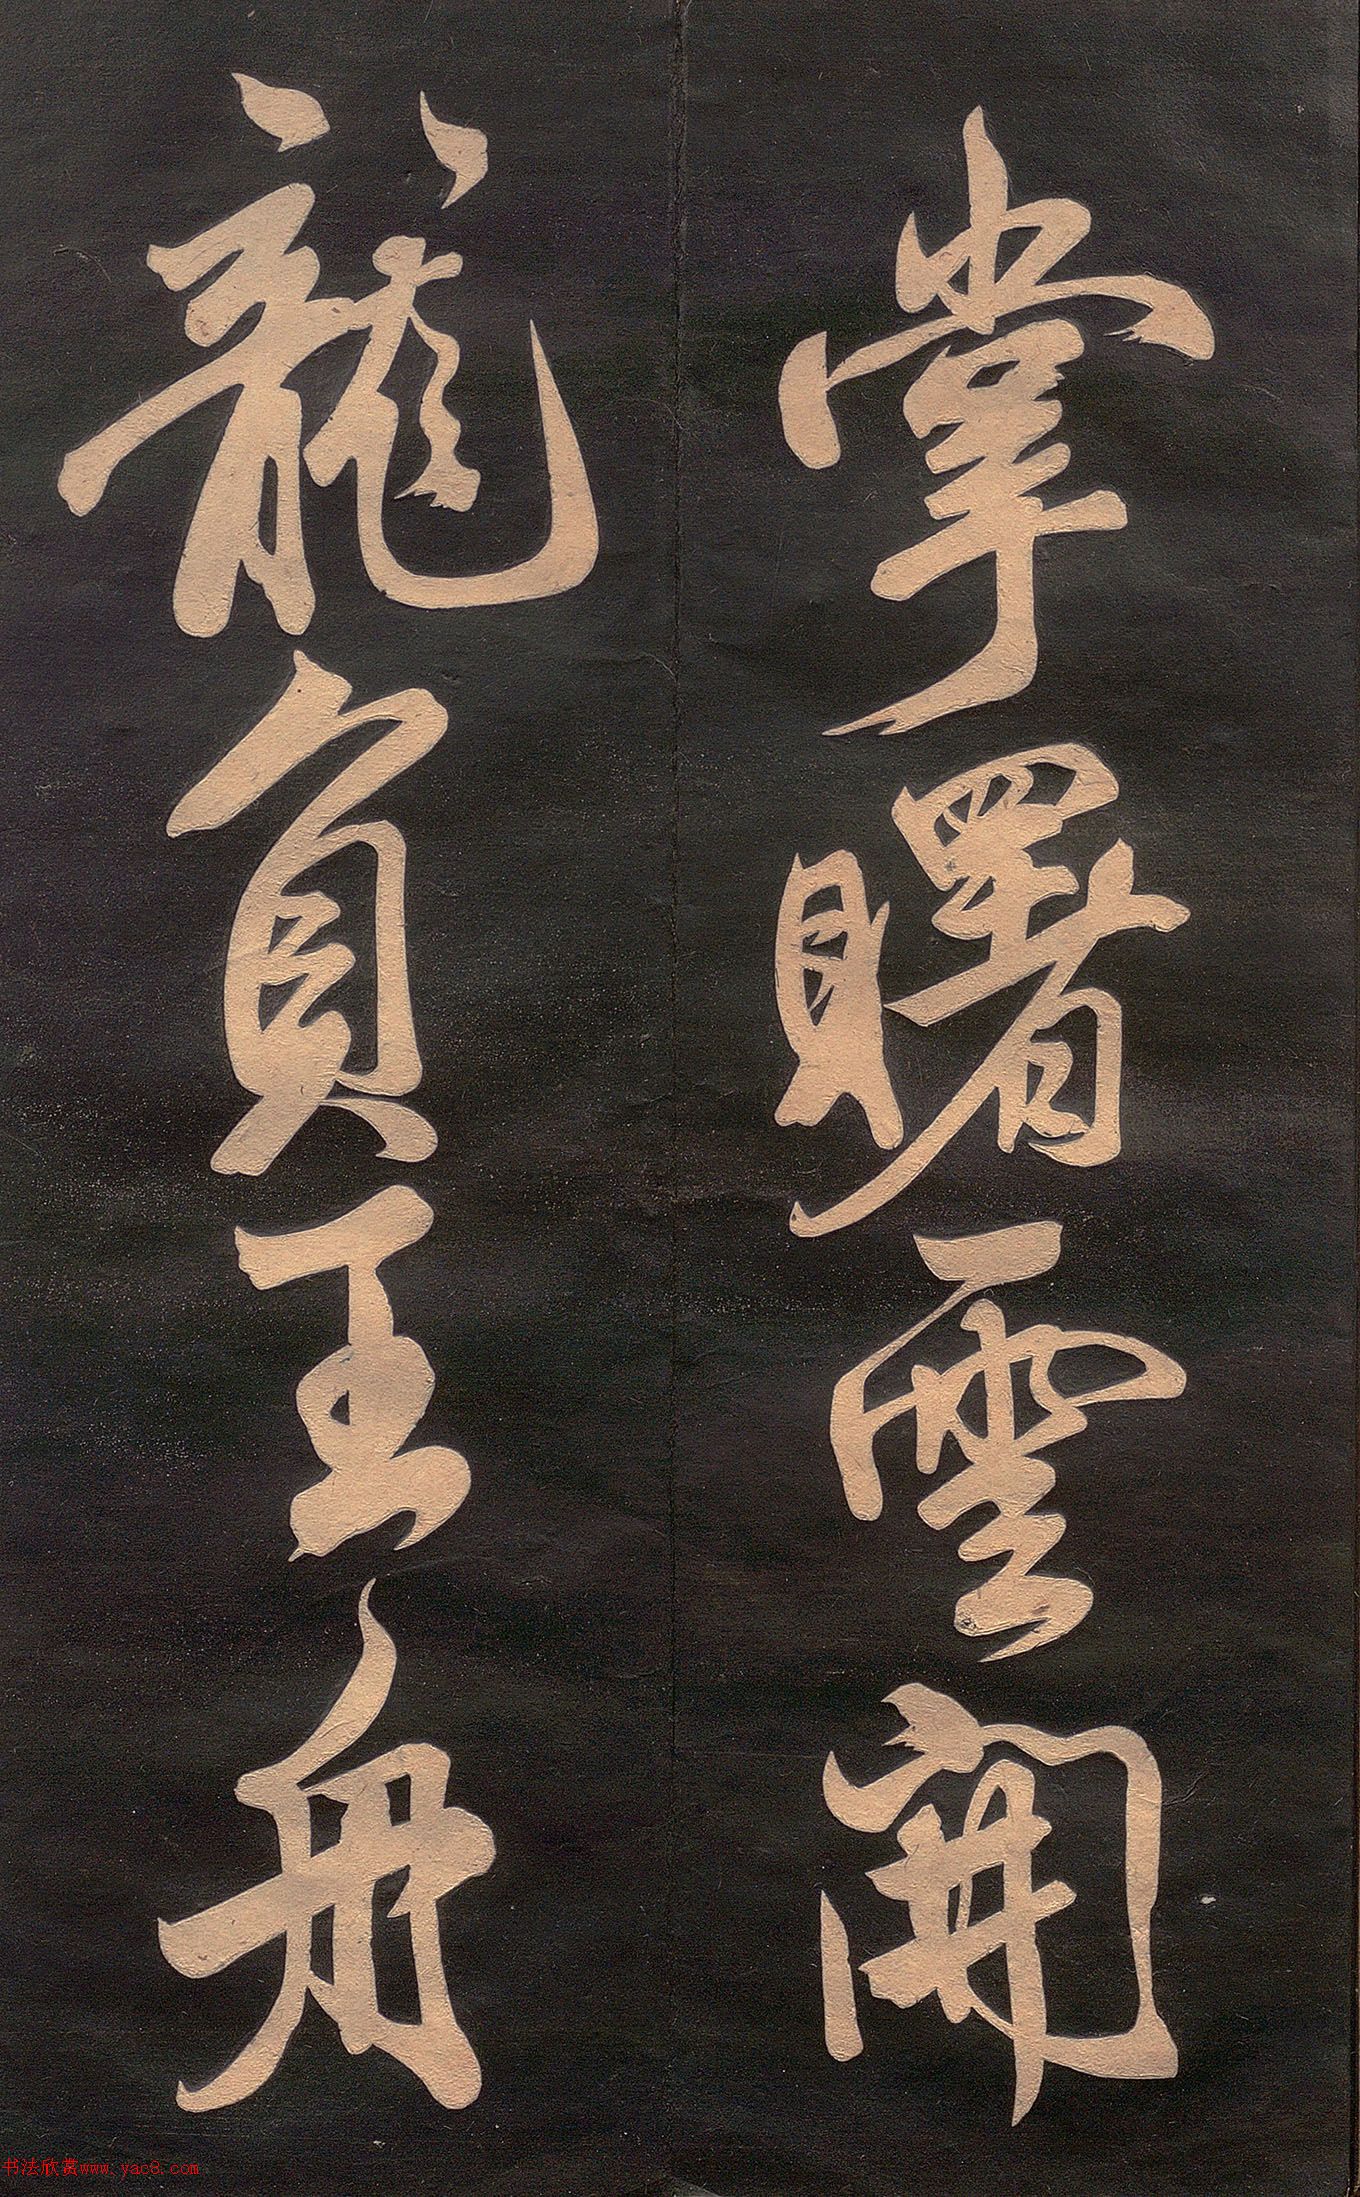 掌曙雲開
龍負王舟
书法欣赏www.yac8.com